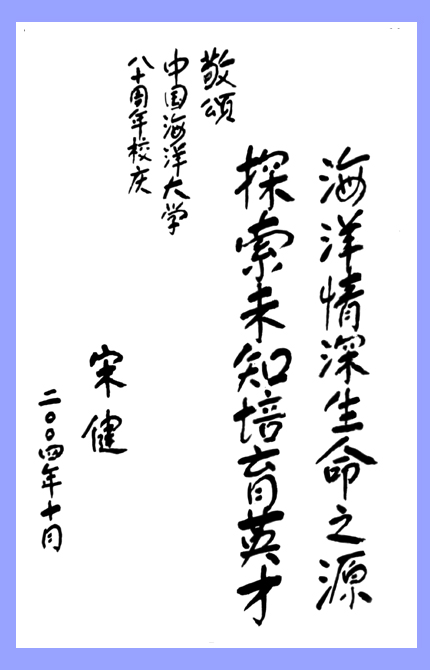 海洋情深生命之源
探索未知培育英才
敬颂
中国海洋大学
八十周年校庆
宋健
二〇〇四年十月